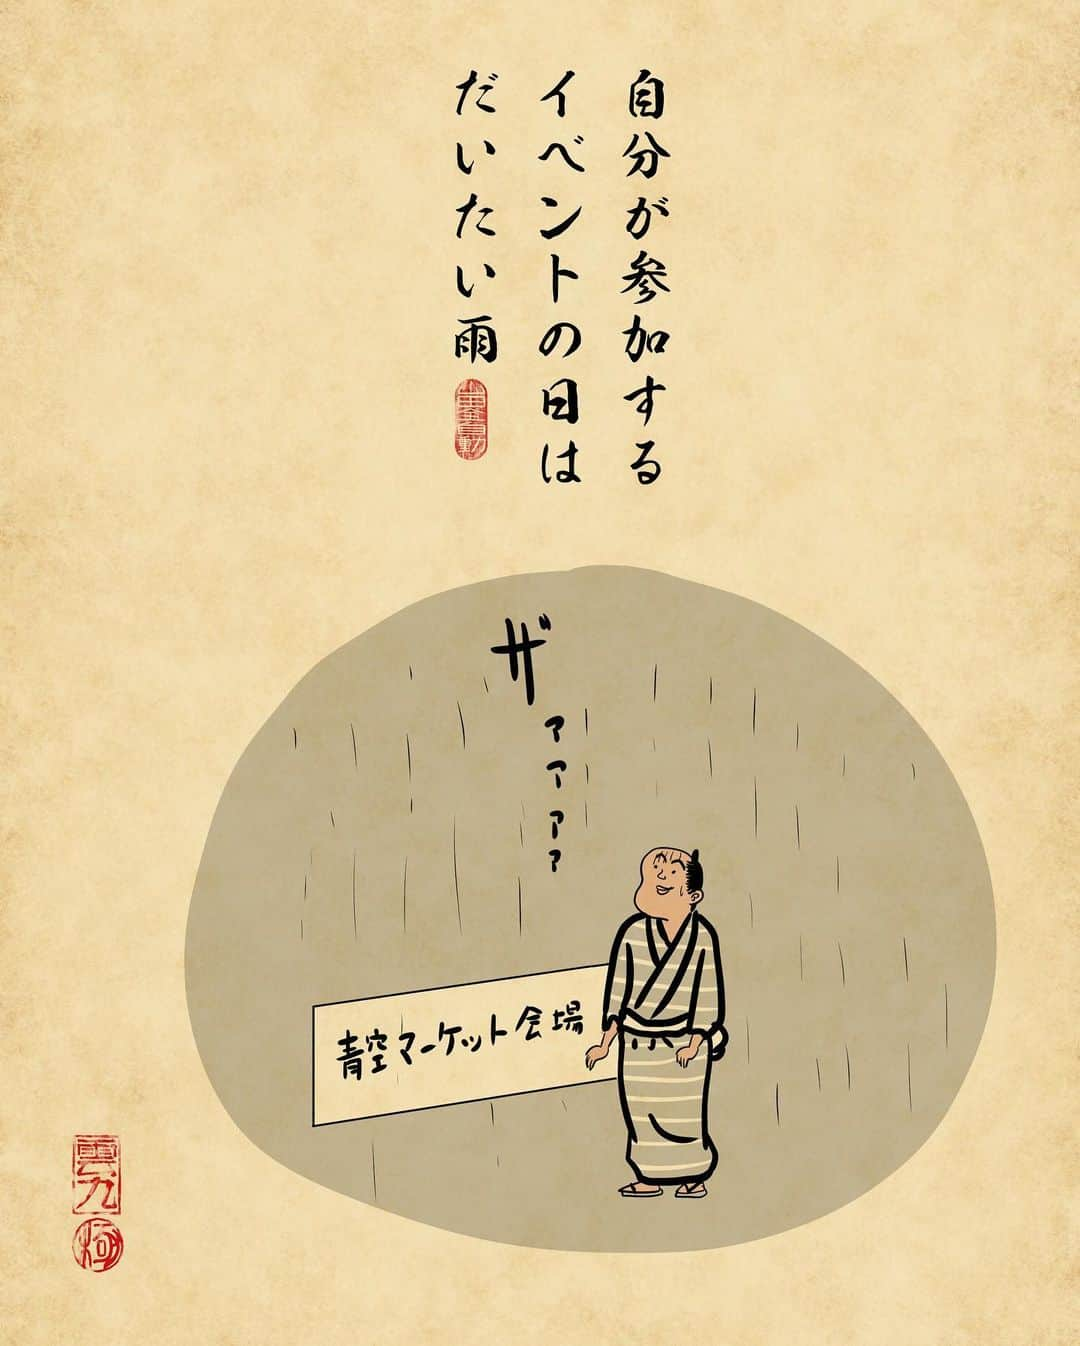 自分が参加する
イベントの日は
だいたい雨
ザァァァァ
青空マーケット会場